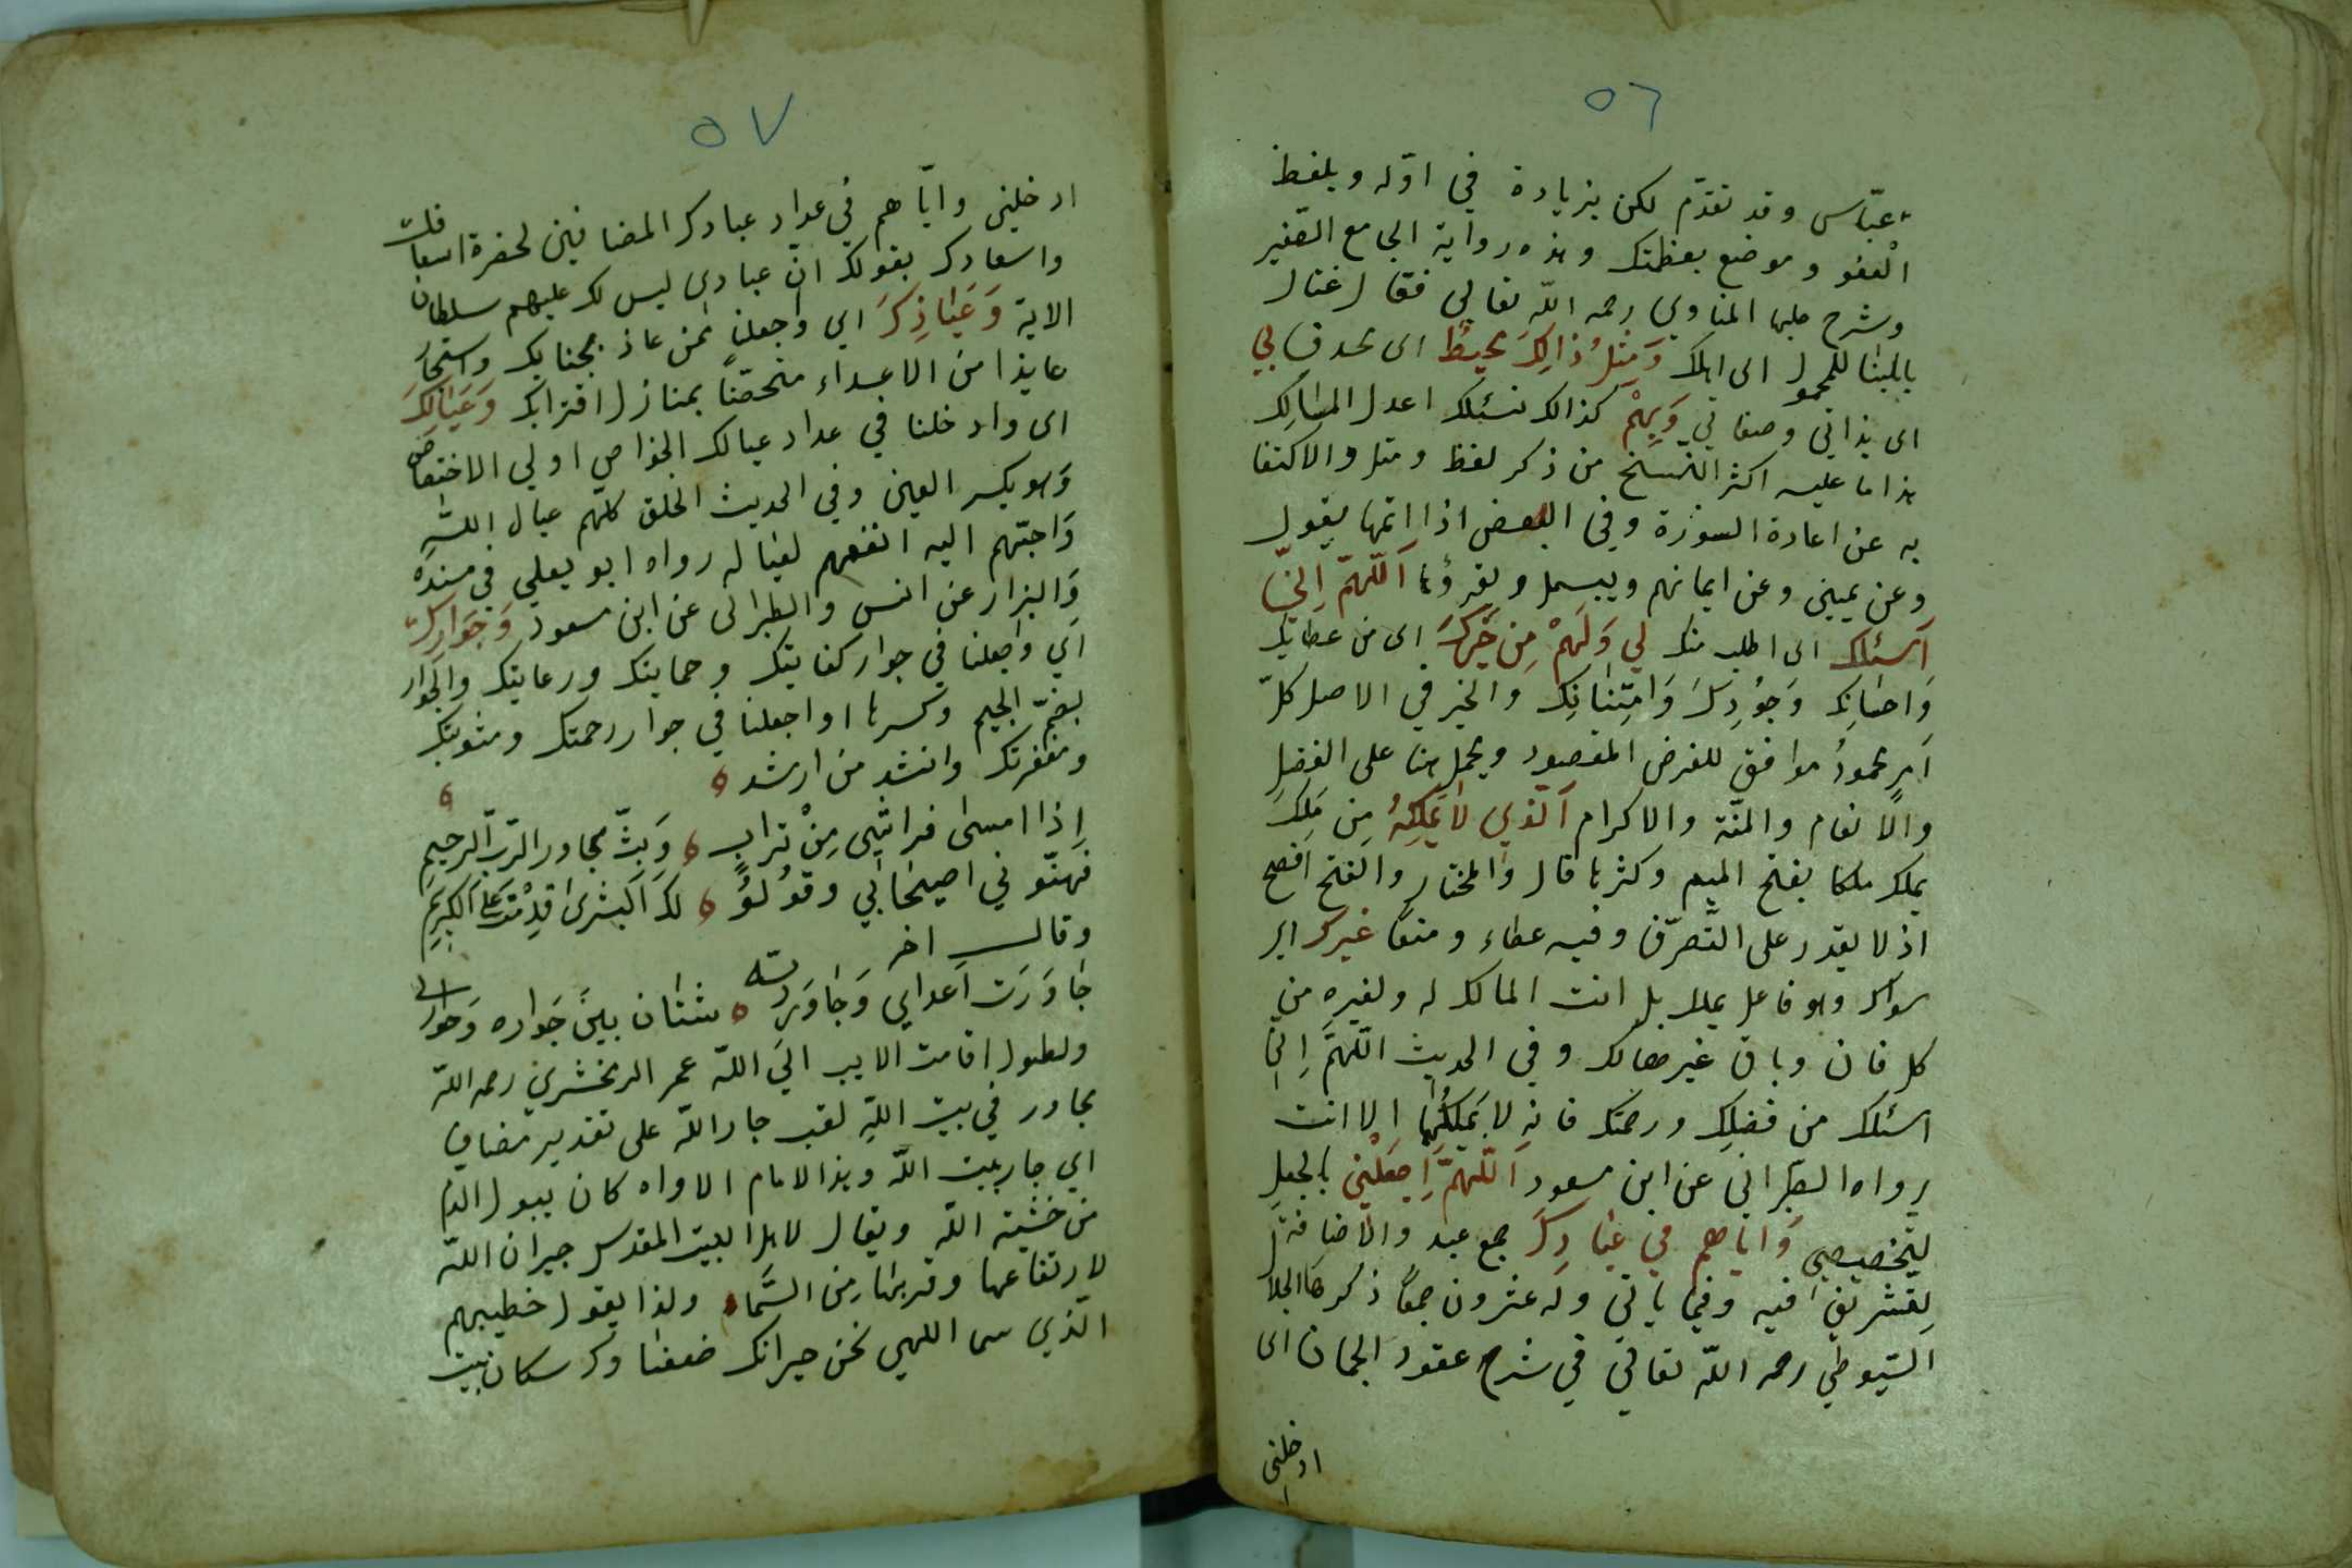 ٥٦
عبّاس وقد تقدّم لكن بزيادة في اوّله وبلفظ
العفو وموضع بعظمتك وهذه رواية الجامع الصّغير
وشرح عليها المناوي رحمه اللّه تعالى فقال
بالبنا للمجهول اى اهلك وَمَثِّلُ ذالِكَ يحيطُ اى يحدق بي
اى بذاتي وصفاتي وَبِهِمْ كذالك نسئلك اعدل المسالِك
هذا ما عليه اكثر النّسخ من ذكر لفظ ومثل والاكتفا
به عن اعادة السورة وفي البعض اذا اتمّها يقول
وعن يميني وعن ايمانهم ويبسمل ويقرؤها اَللّهمّ اِنّي
اَسئلك اى اطلب منك لي وَلَهمْ مِن خَيركَ اى من عطايك
وَاحسانِك وَجوُدِكَ وَامتِنانِك والخير في الاصل كلّ
اَمرٍ محمودُ موافق للغرض المقصود ويحمل هنا على الفضلِ
والاِنعام والمنّة والاكرام اَلّذي لا يَملِكهُ مِن مَلكَ
يملك ملكا بفتح الميم وكسرها قال والمختار والفتح افصح
اذ لا يقدر على التّصرّف وفيه عطاء ومنعًا غيرك اى
سواك وهو فاعل يملك بل انت المالك له ولغيرهِ من
كل فان وباق غير هالك وفي الحديث اللّهمَّ اِنّي
اسئلك من فضلِك ورحمتك فانه لا يَملكُها الا انت
رواه الطّبراني عن ابن مسعود اَللّهمَّ اِجعَلْني بالجعلِ
التّخصيصي وَاياهم في عِبادِكَ جمع عبد والاضافة
لِتشريفٍ فيه وفيما ياتي وله عشرون جمعًا ذكرها الجلال
السّيوطي رحمه اللّه تعالي في شرح عقود الجمان اى
ادخلني
٥٧
ادخلني وايّاهم في عداد عبادك المضافين لحضرة اسعافك
واسعادك بقولك انّ عبادى ليس لك عليهم سلطان
الاية وَعَياذِكَ اى واجعلنا ممن عاذ بجنابك واستجار
عايذا من الاعداء متحصّنًا بمنازل اقترابك وَعَيالِكَ
اى وادخلنا في عداد عيالك الخواص اولي الاختصاص
وَهو بكسر العين وفي الحديث الخلق كلّهم عيال اللّه
وَاحبّهم اليه انفعهم لعياله رواه ابو يعلي في مسنده
وَالبزار عن انس والطبرانى عن ابن مسعود وَجَوَارِكَ
اي واجعلنا في جوار كفايتك وحمايتك ورعايتك والجوار
بضمّ الجيم وكسرها او اجعلنا في جوار رحمتك ومثوبتك
ومغفرتك وانشد من ارشد
اِذا امسىٰ فراشي مِنْ ترابٍ وَبتّ مجاور الرّب الرّحيم
فهنّوني اصيحابي وقوُلوُ لك البشرىٰ قدِمْتَ علىٰ الكريمِ
وقالـــ اخر
جاوَرَت اَعدايي وَجاوَرَ ربّه شتّان بينَ جَواره وَجوارى
ولطول اقامت الاديب الي اللّه عمر الزمخشري رحمه اللّه
مجاور في بيت اللّهِ لقب جار اللّه على تقدير مضاف
اي جار بيت اللّه وهذا الامام الاواه كان يبول الدم
من خشية اللّه ويقال لاهل البيت المقدس جيران اللّه
لارتفاعها وقربها مِن السَّماء ولذا يقول خطيبهم
الّذي سما اللهي نحن جيرانك ضعفنا وكـ سكان بيت